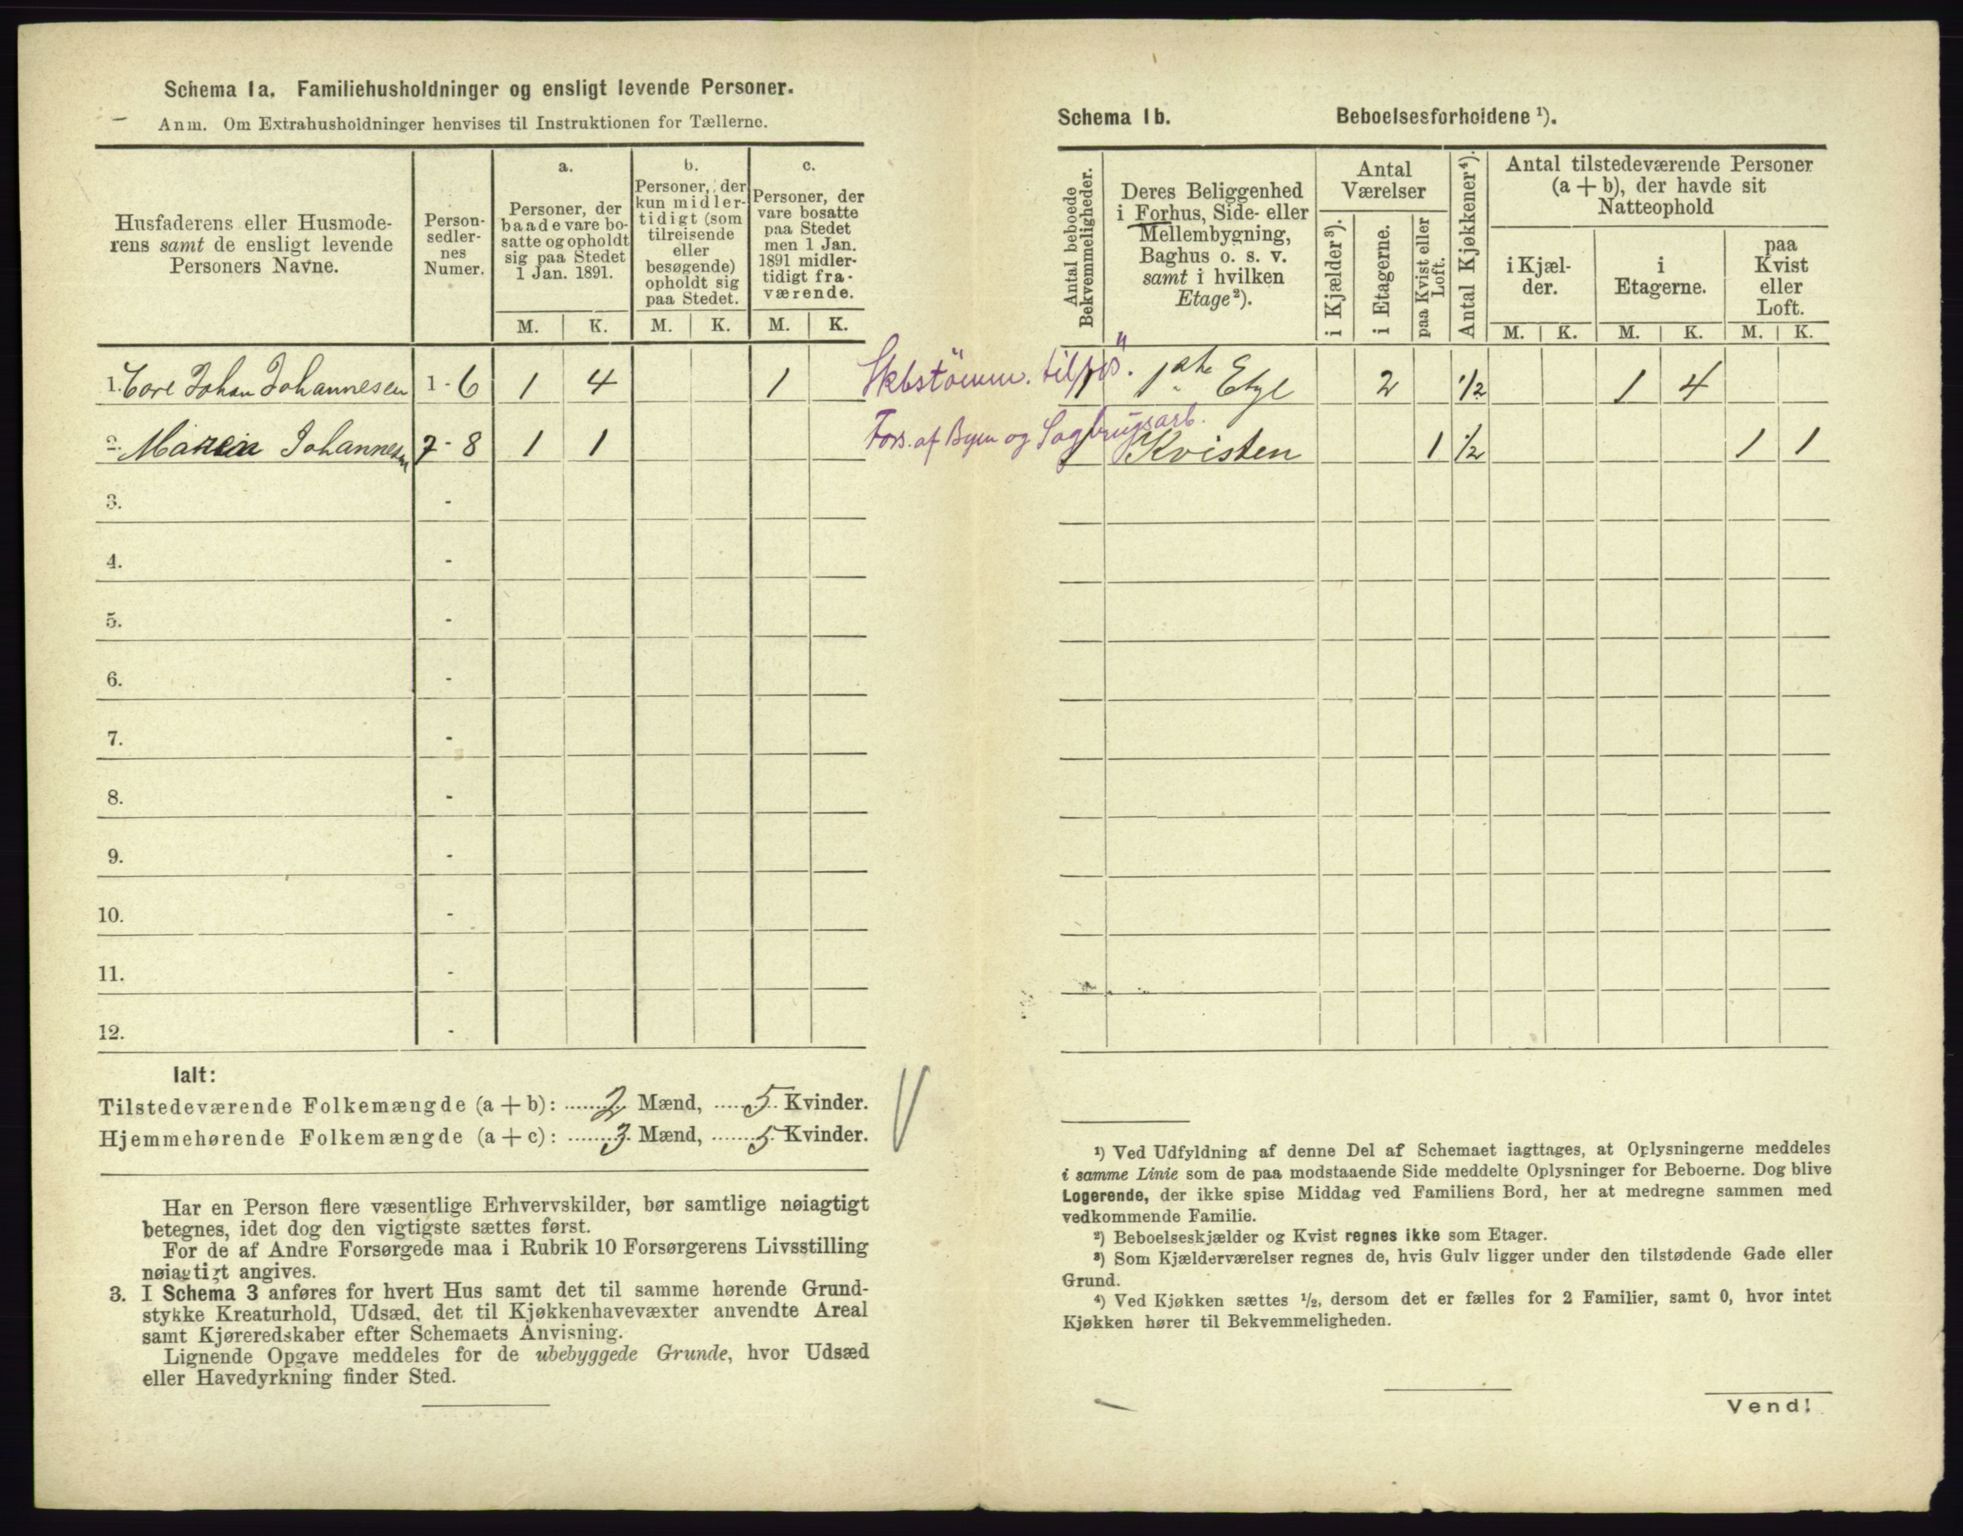 Schema 1a. Familiehusholdninger og ensligt levende Personer.
Anm. Om Extrahusholdninger henvises til Instruktionen for Tællerne.
Husfaderens eller Husmoderens samt de ensligt levende Personers Navne.
Personsedlernes Numer.
a.
Personer, der baade vare bosatte og opholdt sig paa Stedet 1 Jan. 1891.
b.
Personer, der kun midlertidigt (som tilreisende eller besøgende) opholdt sig paa Stedet.
c.
Personer, der vare bosatte paa Stedet men 1 Jan. 1891 midlertidigt fraværende.
M. K. M. K. M. K.
1. Johan Johannesen 1 - 6 1 4 1
2. Maren Johannesen 7 - 8 1 1
3. -
4. -
5. -
6. -
7. -
8. -
9. -
10. -
11. -
12. -
Ialt:
Tilstedeværende Folkemængde (a + b): 2 Mænd, 5 Kvinder.
Hjemmehørende Folkemængde (a + c): 3 Mænd, 5 Kvinder.
Har en Person flere væsentlige Erhvervskilder, bør samtlige nøiagtigt
betegnes, idet dog den vigtigste sættes først.
For de af Andre Forsørgede maa i Rubrik 10 Forsørgerens Livsstilling
nøiagtigt angives.
3. I Schema 3 anføres for hvert Hus samt det til samme hørende Grund-
stykke Kreaturhold, Udsæd, det til Kjøkkenhavevæxter anvendte Areal
samt Kjøreredskaber efter Schemaets Anvisning.
Lignende Opgave meddeles for de ubebyggede Grunde, hvor Udsæd
eller Havedyrkning finder Sted.
Schema 1b. Beboelsesforholdene ¹).
Antal beboede Bekvemmeligheder.
Deres Beliggenhed i Forhus, Side- eller Mellembygning, Baghus o. s. v. samt i hvilken Etage²).
Antal Værelser
i Kjælder³).
i Etagerne.
paa Kvist eller Loft.
Antal Kjøkkener⁴).
Antal tilstedeværende Personer (a + b), der havde sit Natteophold
i Kjælder.
i Etagerne.
paa Kvist eller Loft.
M. K. M. K. M. K.
Skbstömm. 1 1ste Etge 2 1/2 1 4
Fors. af Byen og Sagbrugsarb.
1 Kvisten 1 1/2 1 1
¹) Ved Udfyldning af denne Del af Schemaet iagttages, at Oplysningerne meddeles
i samme Linie som de paa modstaaende Side meddelte Oplysninger for Beboerne. Dog blive
Logerende, der ikke spise Middag ved Familiens Bord, her at medregne sammen med
vedkommende Familie.
²) Beboelseskjælder og Kvist regnes ikke som Etager.
³) Som Kjælderværelser regnes de, hvis Gulv ligger under den tilstødende Gade eller
Grund.
⁴) Ved Kjøkken sættes ½, dersom det er fælles for 2 Familier, samt 0, hvor intet
Kjøkken hører til Bekvemmeligheden.
Vend!